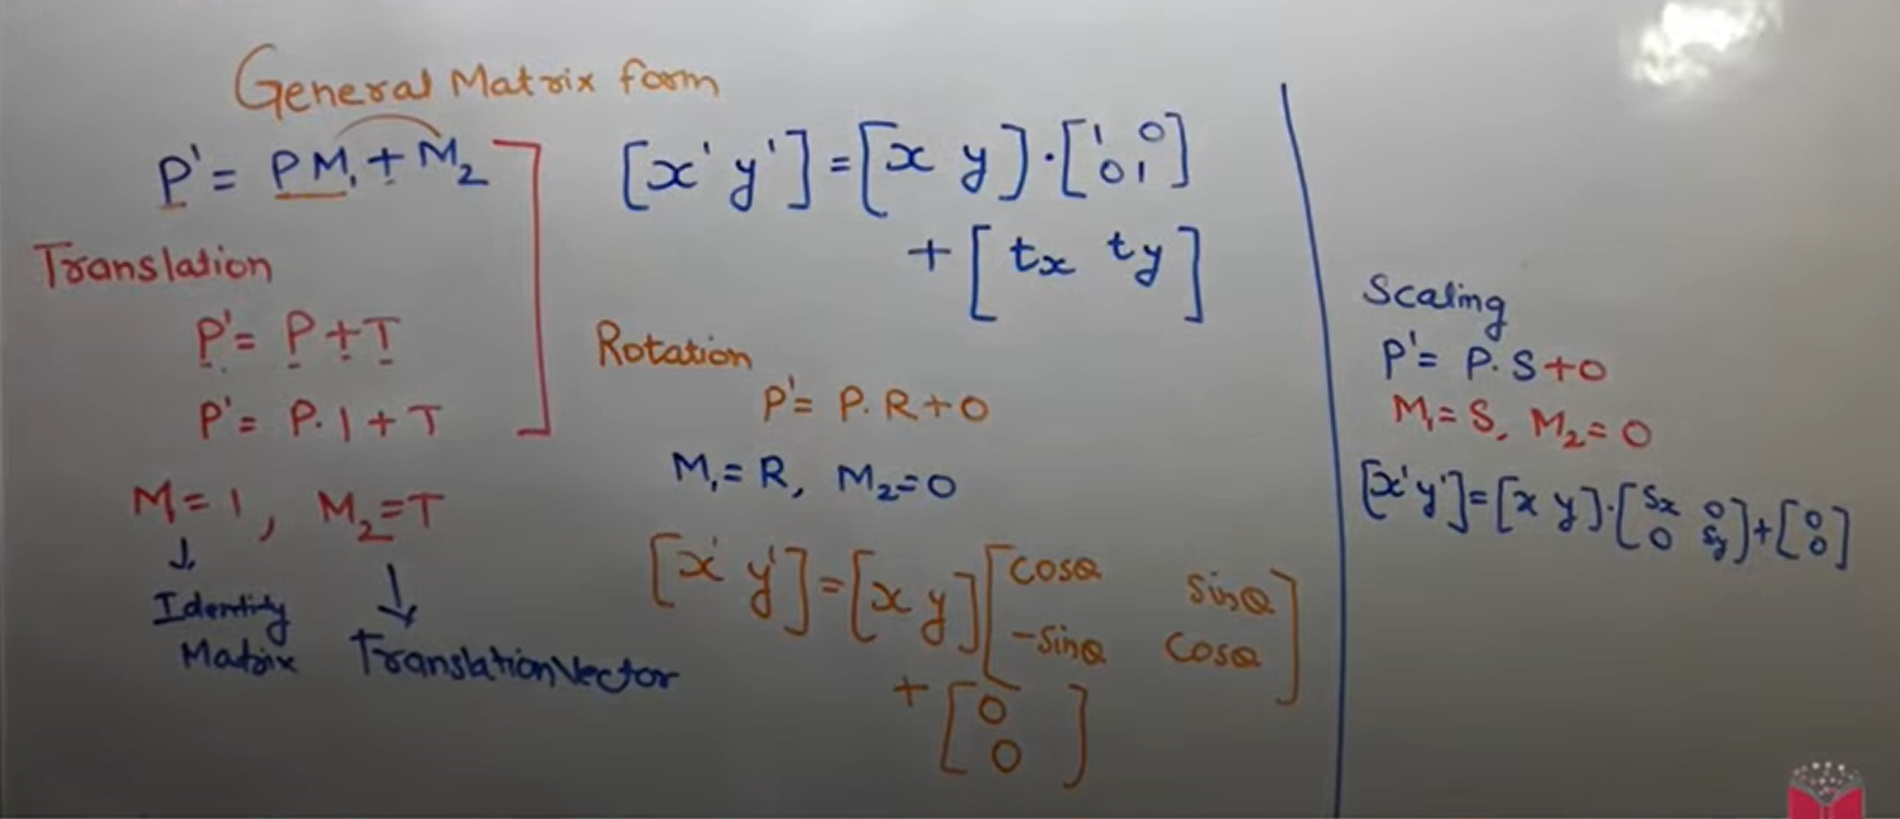 General Matrix form
P' = P M₁ + M₂
Translation
P' = P + T
P' = P. I + T
M₁ = I, M₂ = T
↓ ↓
Identity
Matrix
Translation Vector
[x' y'] = [x y] . [1 0
0 1]
+ [tx ty]
Rotation
P' = P. R + 0
M₁ = R, M₂ = 0
[x' y'] = [x y] [cosθ sinθ
-sinθ cosθ]
+ [0
0]
Scaling
P' = P. S + 0
M₁ = S, M₂ = 0
[x' y'] = [x y] . [Sx 0
0 Sy] + [0
0]